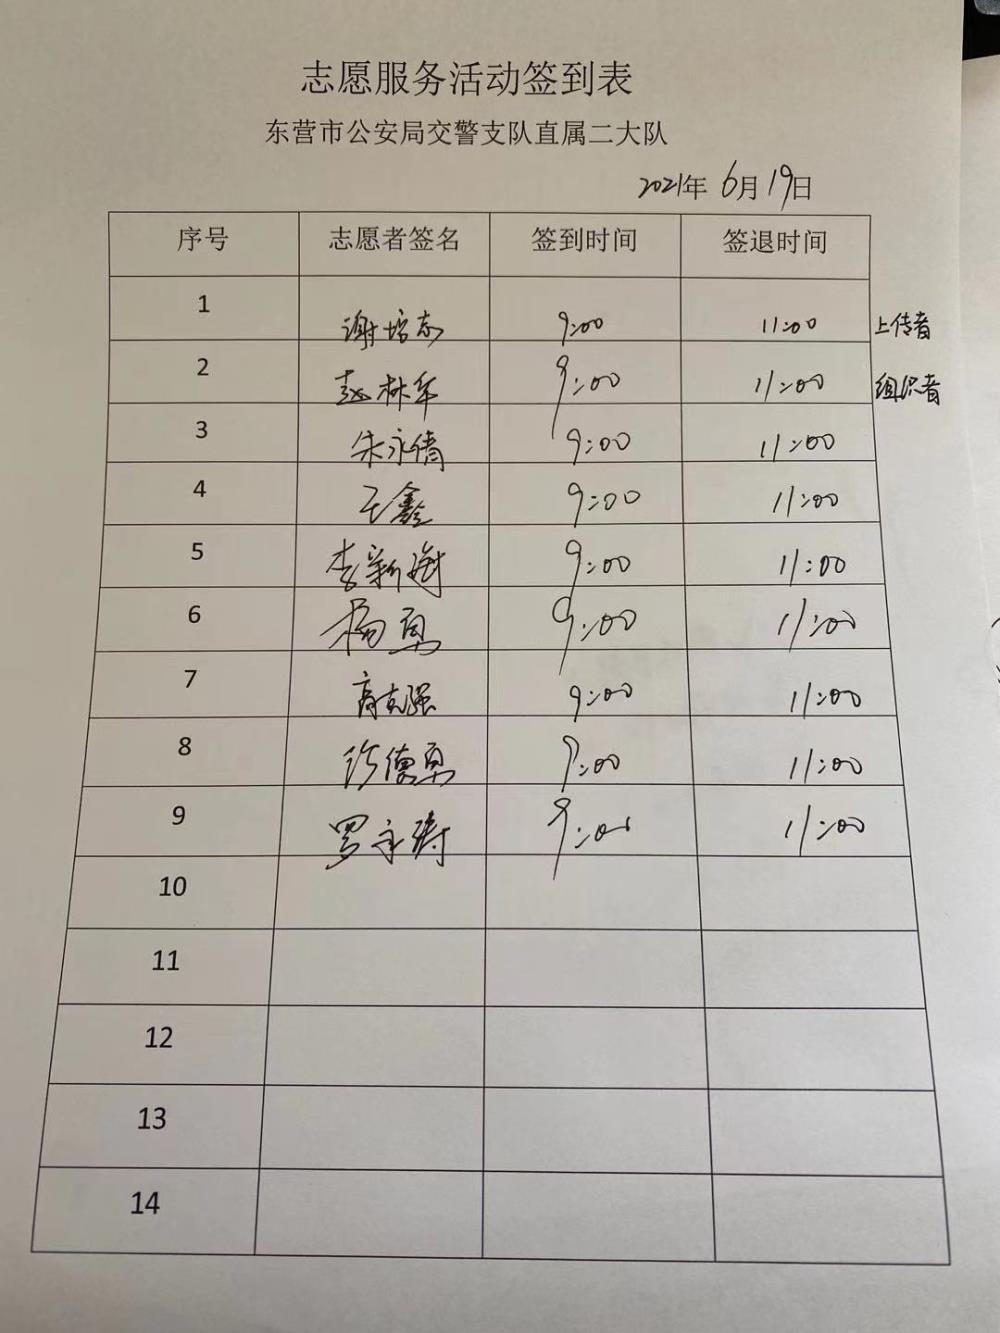 志愿服务活动签到表
东营市公安局交警支队直属二大队
2021年 6月19日
序号 志愿者签名 签到时间 签退时间
1 谢培志 9:00 11:00 上传者
2 赵林军 9:00 11:00 组织者
3 朱永倩 9:00 11:00
4 王鑫 9:00 11:00
5 李新 9:00 11:00
6 杨勇 9:00 11:00
7 高克强 9:00 11:00
8 徐德勇 9:00 11:00
9 罗永涛 9:00 11:00
10
11
12
13
14